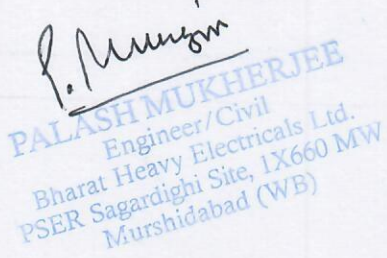 PALASH MUKHERJEE
Engineer/Civil
Bharat Heavy Electricals Ltd.
PSER Sagardighi Site, 1X660 MW
Murshidabad (WB)